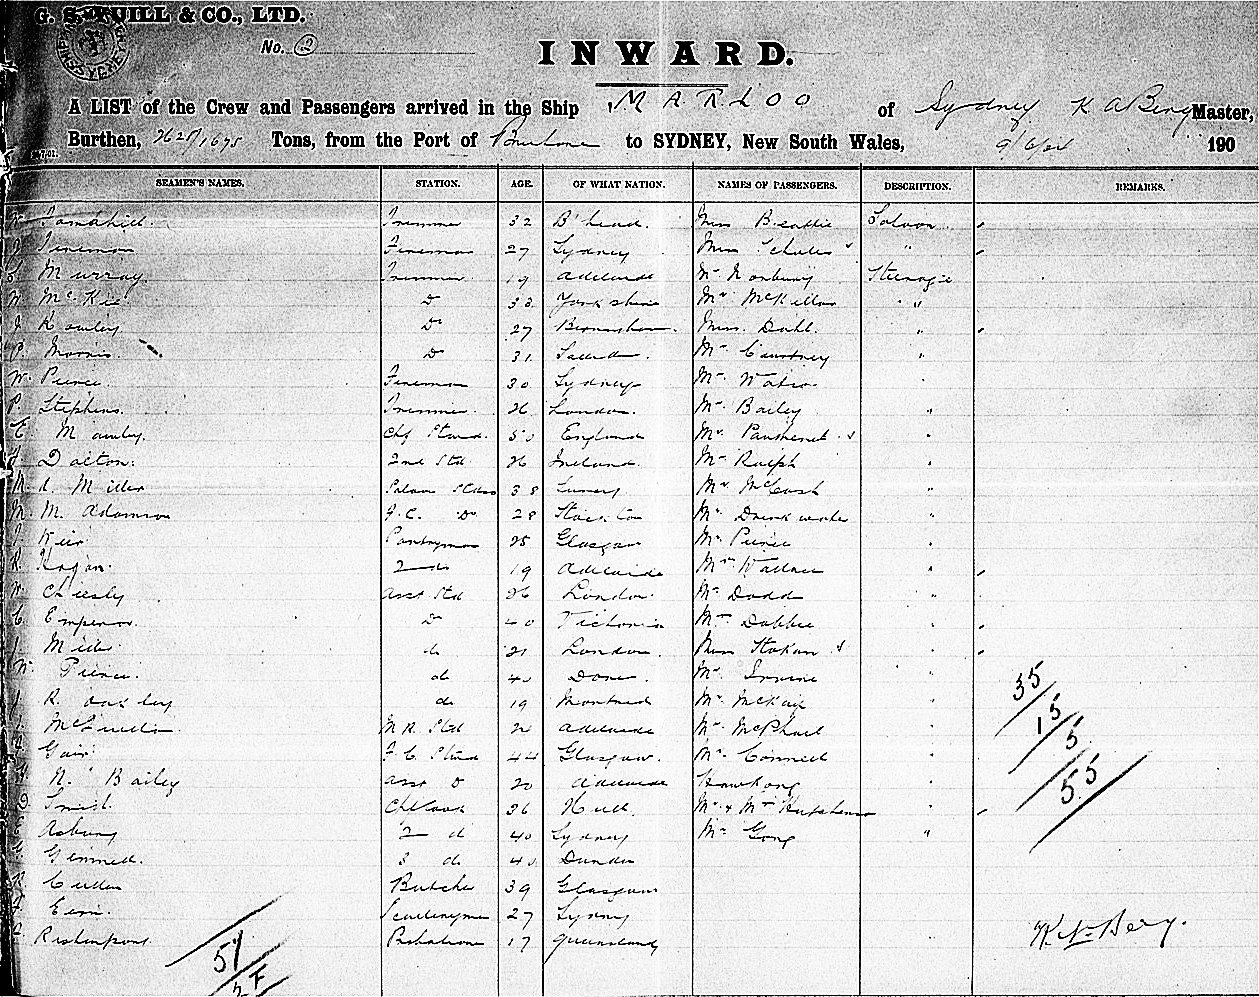 G. S. YUILL & CO., LTD.
No. 2
INWARD.
A LIST of the Crew and Passengers arrived in the Ship MARLOO of Sydney K A Berg Master,
Burthen, Tons, from the Port of to SYDNEY, New South Wales, 9/6/04 190
SEAMEN'S NAMES. STATION. AGE. OF WHAT NATION. NAMES OF PASSENGERS. DESCRIPTION. REMARKS.
Tannahill. Trimmer 32 B'head. Miss Beattie Saloon
Fireman 27 Sydney Miss Schules "
Murray. Trimmer 19 Adelaide Mr Norbury Steerage
W McKee Do 33 Yorkshire Mr McKellar "
J Do 27 Birmingham. Miss. Dahl. "
P. Morris. Do 31 Mr Courtney "
W. Peirce. Fireman 30 Sydney Mr Watson
P. Stephens. Trimmer 26 London. Mr. Bailey "
E. Manley. Chf Stwd. 50 England Mr "
Dalton. 2nd Std 26 Ireland. Mr Ralph "
Miller Saloon Stdss 38 Mr McCash "
M. M. Adamson F.C. Do 28 Mr Drinkwater "
J Weir Pantryman 25 Glasgow Mr Peirce "
Hogan. 2 do 19 Adelaide Mrs Wallace "
Chesly Asst Std 26 London. Mr Dodd "
C Emperor. Do 40 Victoria Mrs Dobbie
J. Miles do 21 London. Miss Stokan
W. Peirce. do 40 Dover. Mr. Irvine
J. R. Oakley do 19 Montreal Mr McKay
M R. Std Adelaide Mr. McPhail
Gair F. C. Stwd 44 Glasgow. Mr. Connell
N. Bailey Asst D 20 Adelaide
D. Smith. Ch Cook 36 Hull Mr & Mrs Hutchinson
Asbury 2 d 40 Sydney Mr Gong "
Gemmell. 3 d 40 Dundee
Cullen Butcher 39 Glasgow
Scullerymn 27 Sydney
17 Queensland
35
15
5
55
51
K A Berg.